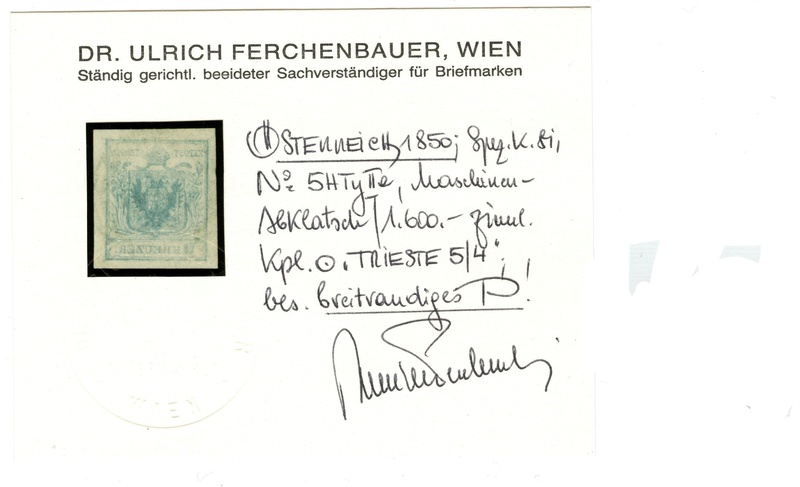 DR. ULRICH FERCHENBAUER, WIEN
Ständig gerichtl. beeideter Sachverständiger für Briefmarken
ÖSTERREICH 1850; Spez. K. Bi,
No 5H Type, Maschinen-
Abklatsch / 1.600.- ziml.
Kpl. ⊙ "TRIESTE 5/4";
bes. breitrandiges P!
WIEN